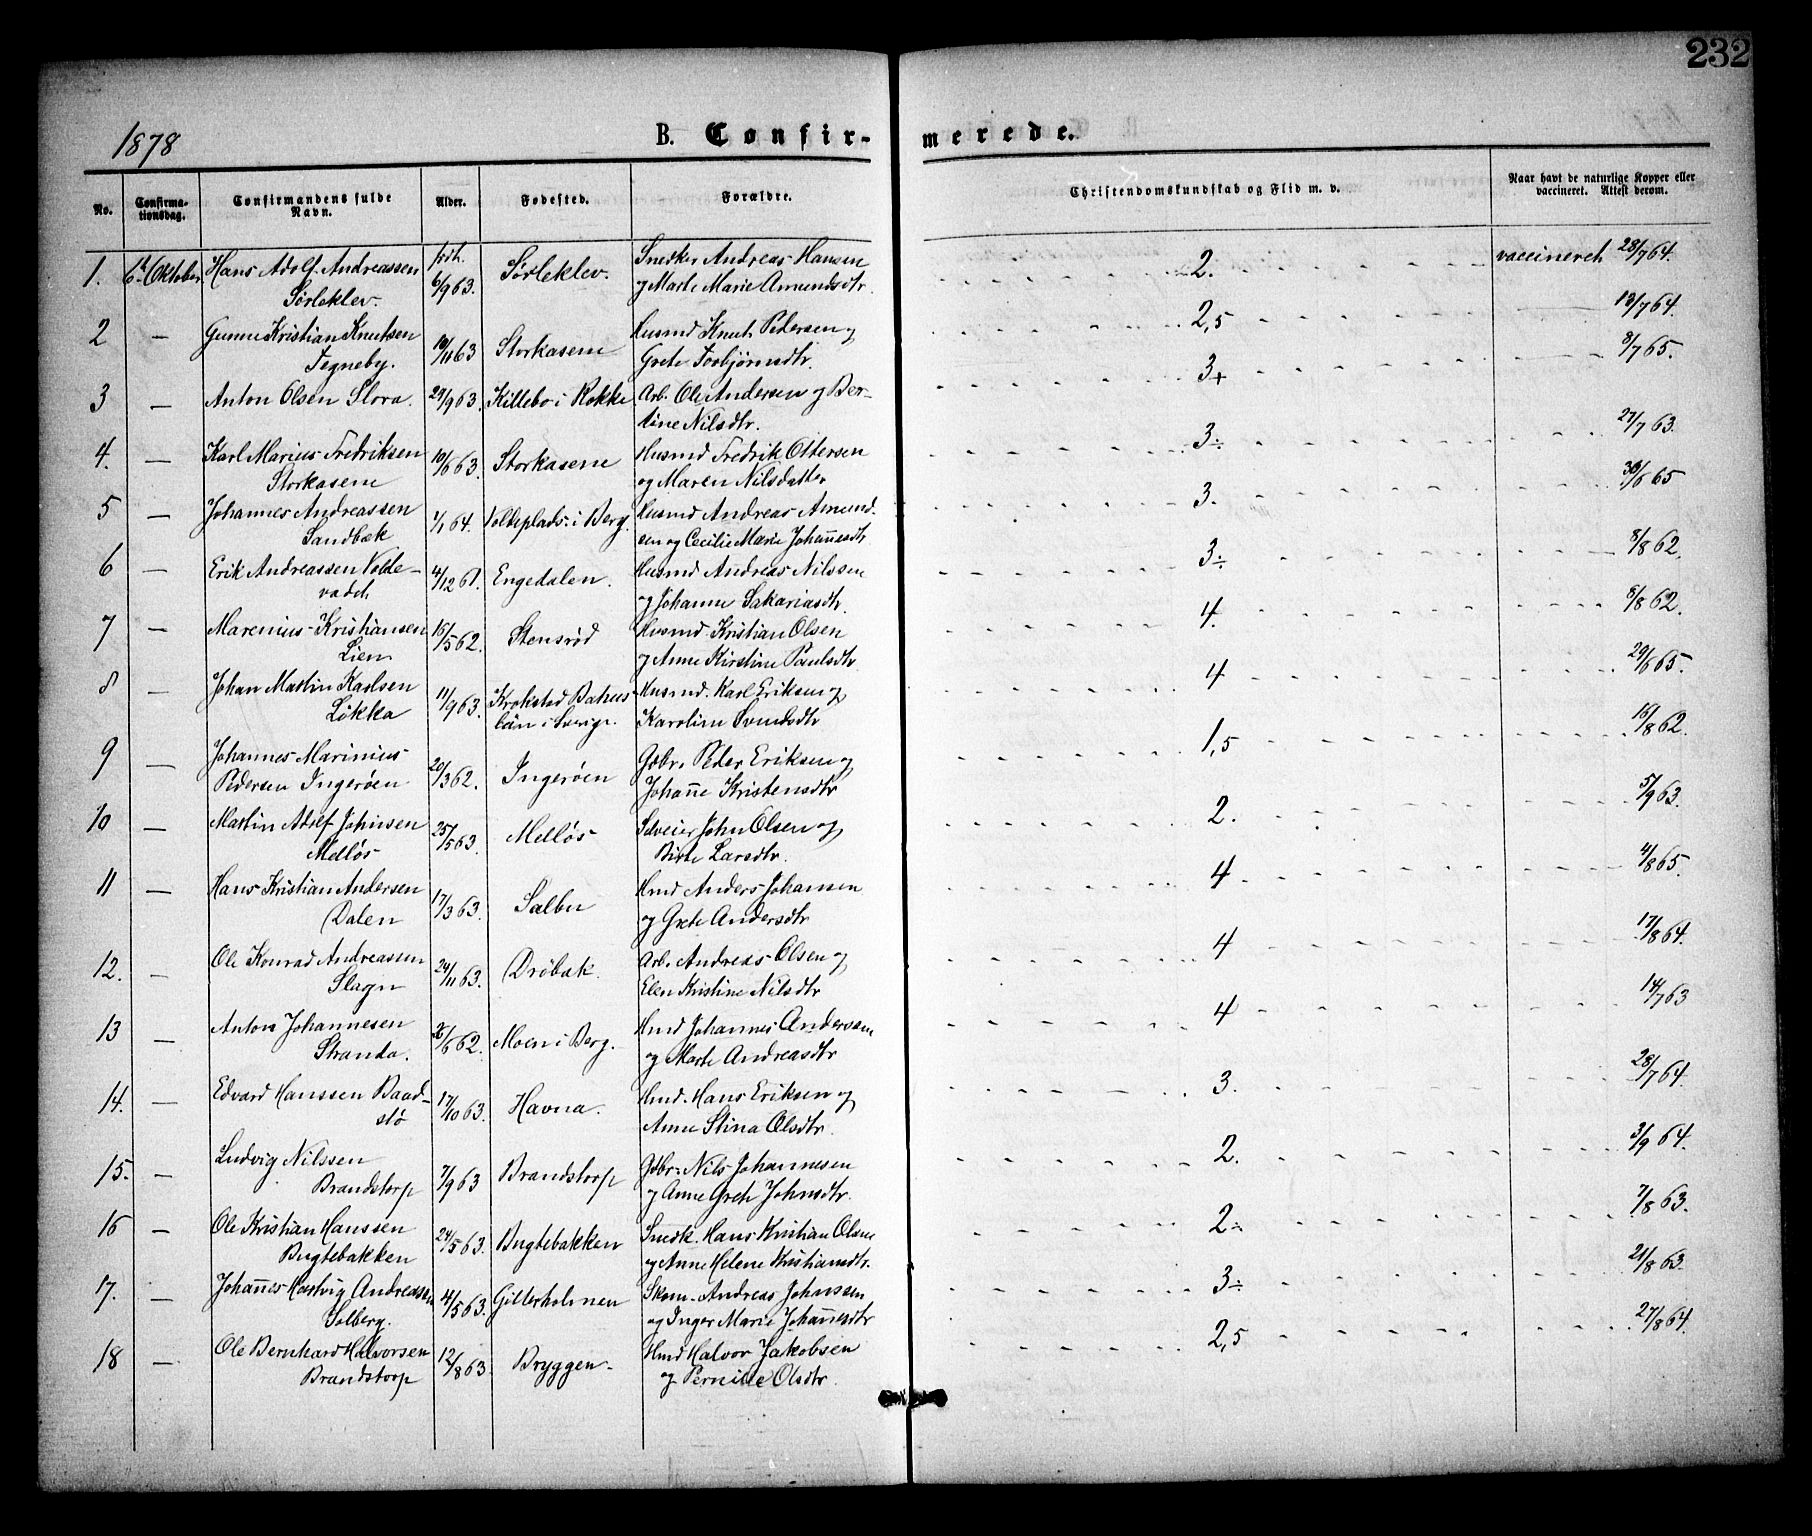 232
1878
B. Confir-
merede.
No.
Confirma-
tionsdag.
Confirmandens fulde
Navn.
Alder.
Fødested.
Forældre.
Christendomskundskab og Flid m. v.
Naar havt de naturlige Kopper eller
vaccineret. Attest derom.
1. 6te Oktober Hans Adolf Andreassen født Sørleklev. Snedker Andreas Hansen 2. vaccineret 28/7 64.
Sørleklev. 6/9 63. og Marte Marie Amundsdtr.
2 — Gunne Kristian Knutsen 10/11 63 Storkasene Husmd Knut Pedersen og 2,5 13/7 64.
Tegneby. Grete Torbjørnsdtr.
3 — Anton Olsen Slora. 29/9 63. Killebo i Rokke Arb. Ole Andersen og Ber- 3+ 8/7 65.
tine Nilsdtr.
4. — Karl Marius Fredriksen 10/6 63. Storkasene Husmd Fredrik Ottersen 3÷ 27/7 63.
Storkasene og Maren Nilsdatter
5 — Johannes Andreassen 1/1 64. Volteplads i Berg. Husmd Andreas Amund- 3. 30/6 65
Sandbæk sen og Cecilie Marie Johannesdtr
6 — Erik Andreassen Volde- 4/12 61. Engedalen. Husmd Andreas Nilssen 3÷ 8/8 62.
vadet og Johanne Sakariasdtr.
7 — Marenius Kristiansen 16/5 62. Stensrød Husmd Kristian Olsen 4. 8/8 62.
Lien og Anne Kirstine Paulsdtr
8 — Johan Martin Karlsen 11/9 63. Krokstad Bahus- Husmd. Karl Eriksen og 4 29/6 65.
Løkka län i Sverige. Karoline Svendsdtr
9 — Johannes Marinius 20/3 62. Ingerøen Gdbr. Peder Eriksen og 1,5 16/8 62.
Pedersen Ingerøen Johanne Kristensdtr
10 — Martin Adolf Johnsen 25/5 63. Melløs Selveier John Olsen og 2. 5/9 63.
Melløs Birte Larsdtr.
11 — Hans Kristian Andersen 17/3 63. Salbu Hmd Anders Johansen 4 4/8 65.
Dalen og Grete Andersdtr
12. — Ole Konrad Andreassen 24/11 63. Drøbak. Arb. Andreas Olsen og 4 17/8 64.
Slagn Elen Kristine Nilsdtr
13 — Anton Johannesen 26/6 62. Moen i Berg. Hmd Johannes Andersen 4 14/7 63
Stranda. og Marte Andreasdtr
14. — Edvard Hanssen Baad- 17/10 63. Havna. Hmd. Hans Eriksen og 3. 28/7 64.
stø Anne Stina Olsdtr.
15. — Ludvig Nilssen 7/9 63 Brandstorp Gdbr. Nils Johannesen 2. 3/9 64.
Brandstorp og Anne Grete Johnsdtr.
16 — Ole Kristian Hanssen 24/5 63. Bugtebakken Snedk. Hans Kristian Olsen 2÷ 7/8 63.
Bugtebakken og Anne Helene Kristiansdtr.
17. — Johannes Hartvig Andreassen 14/5 63. Gitterholmen Skom. Andreas Johnssen 3÷ 21/8 63.
Solberg. og Inger Marie Johannesdtr
18 — Ole Bernhard Halvorsen 12/8 63. Bryggen. Hmd Halvor Jakobsen 2,5 27/8 64.
Brandstorp og Pernille Olsdtr.